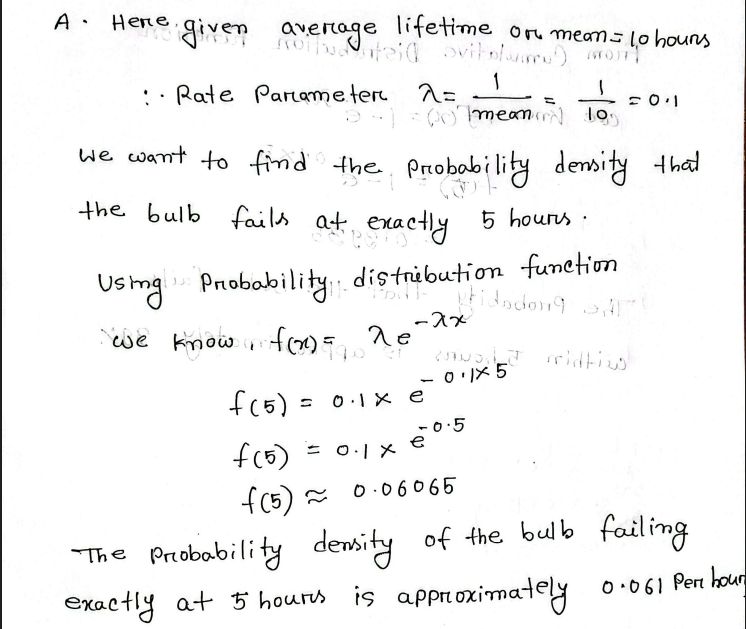 A. Here given average lifetime or mean = 10 hours
∴ Rate Parameter λ = 1/mean = 1/10 = 0.1
We want to find the probability density that
the bulb fails at exactly 5 hours.
Using Probability distribution function
we know, f(x) = λe^-λx
f(5) = 0.1 × e^-0.1×5
f(5) = 0.1 × e^-0.5
f(5) ≈ 0.06065
The probability density of the bulb failing
exactly at 5 hours is approximately 0.061 Per hour